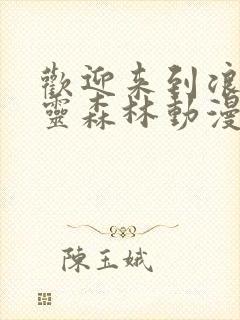 歡迎来到浪
靈森林動漫
陳玉娥